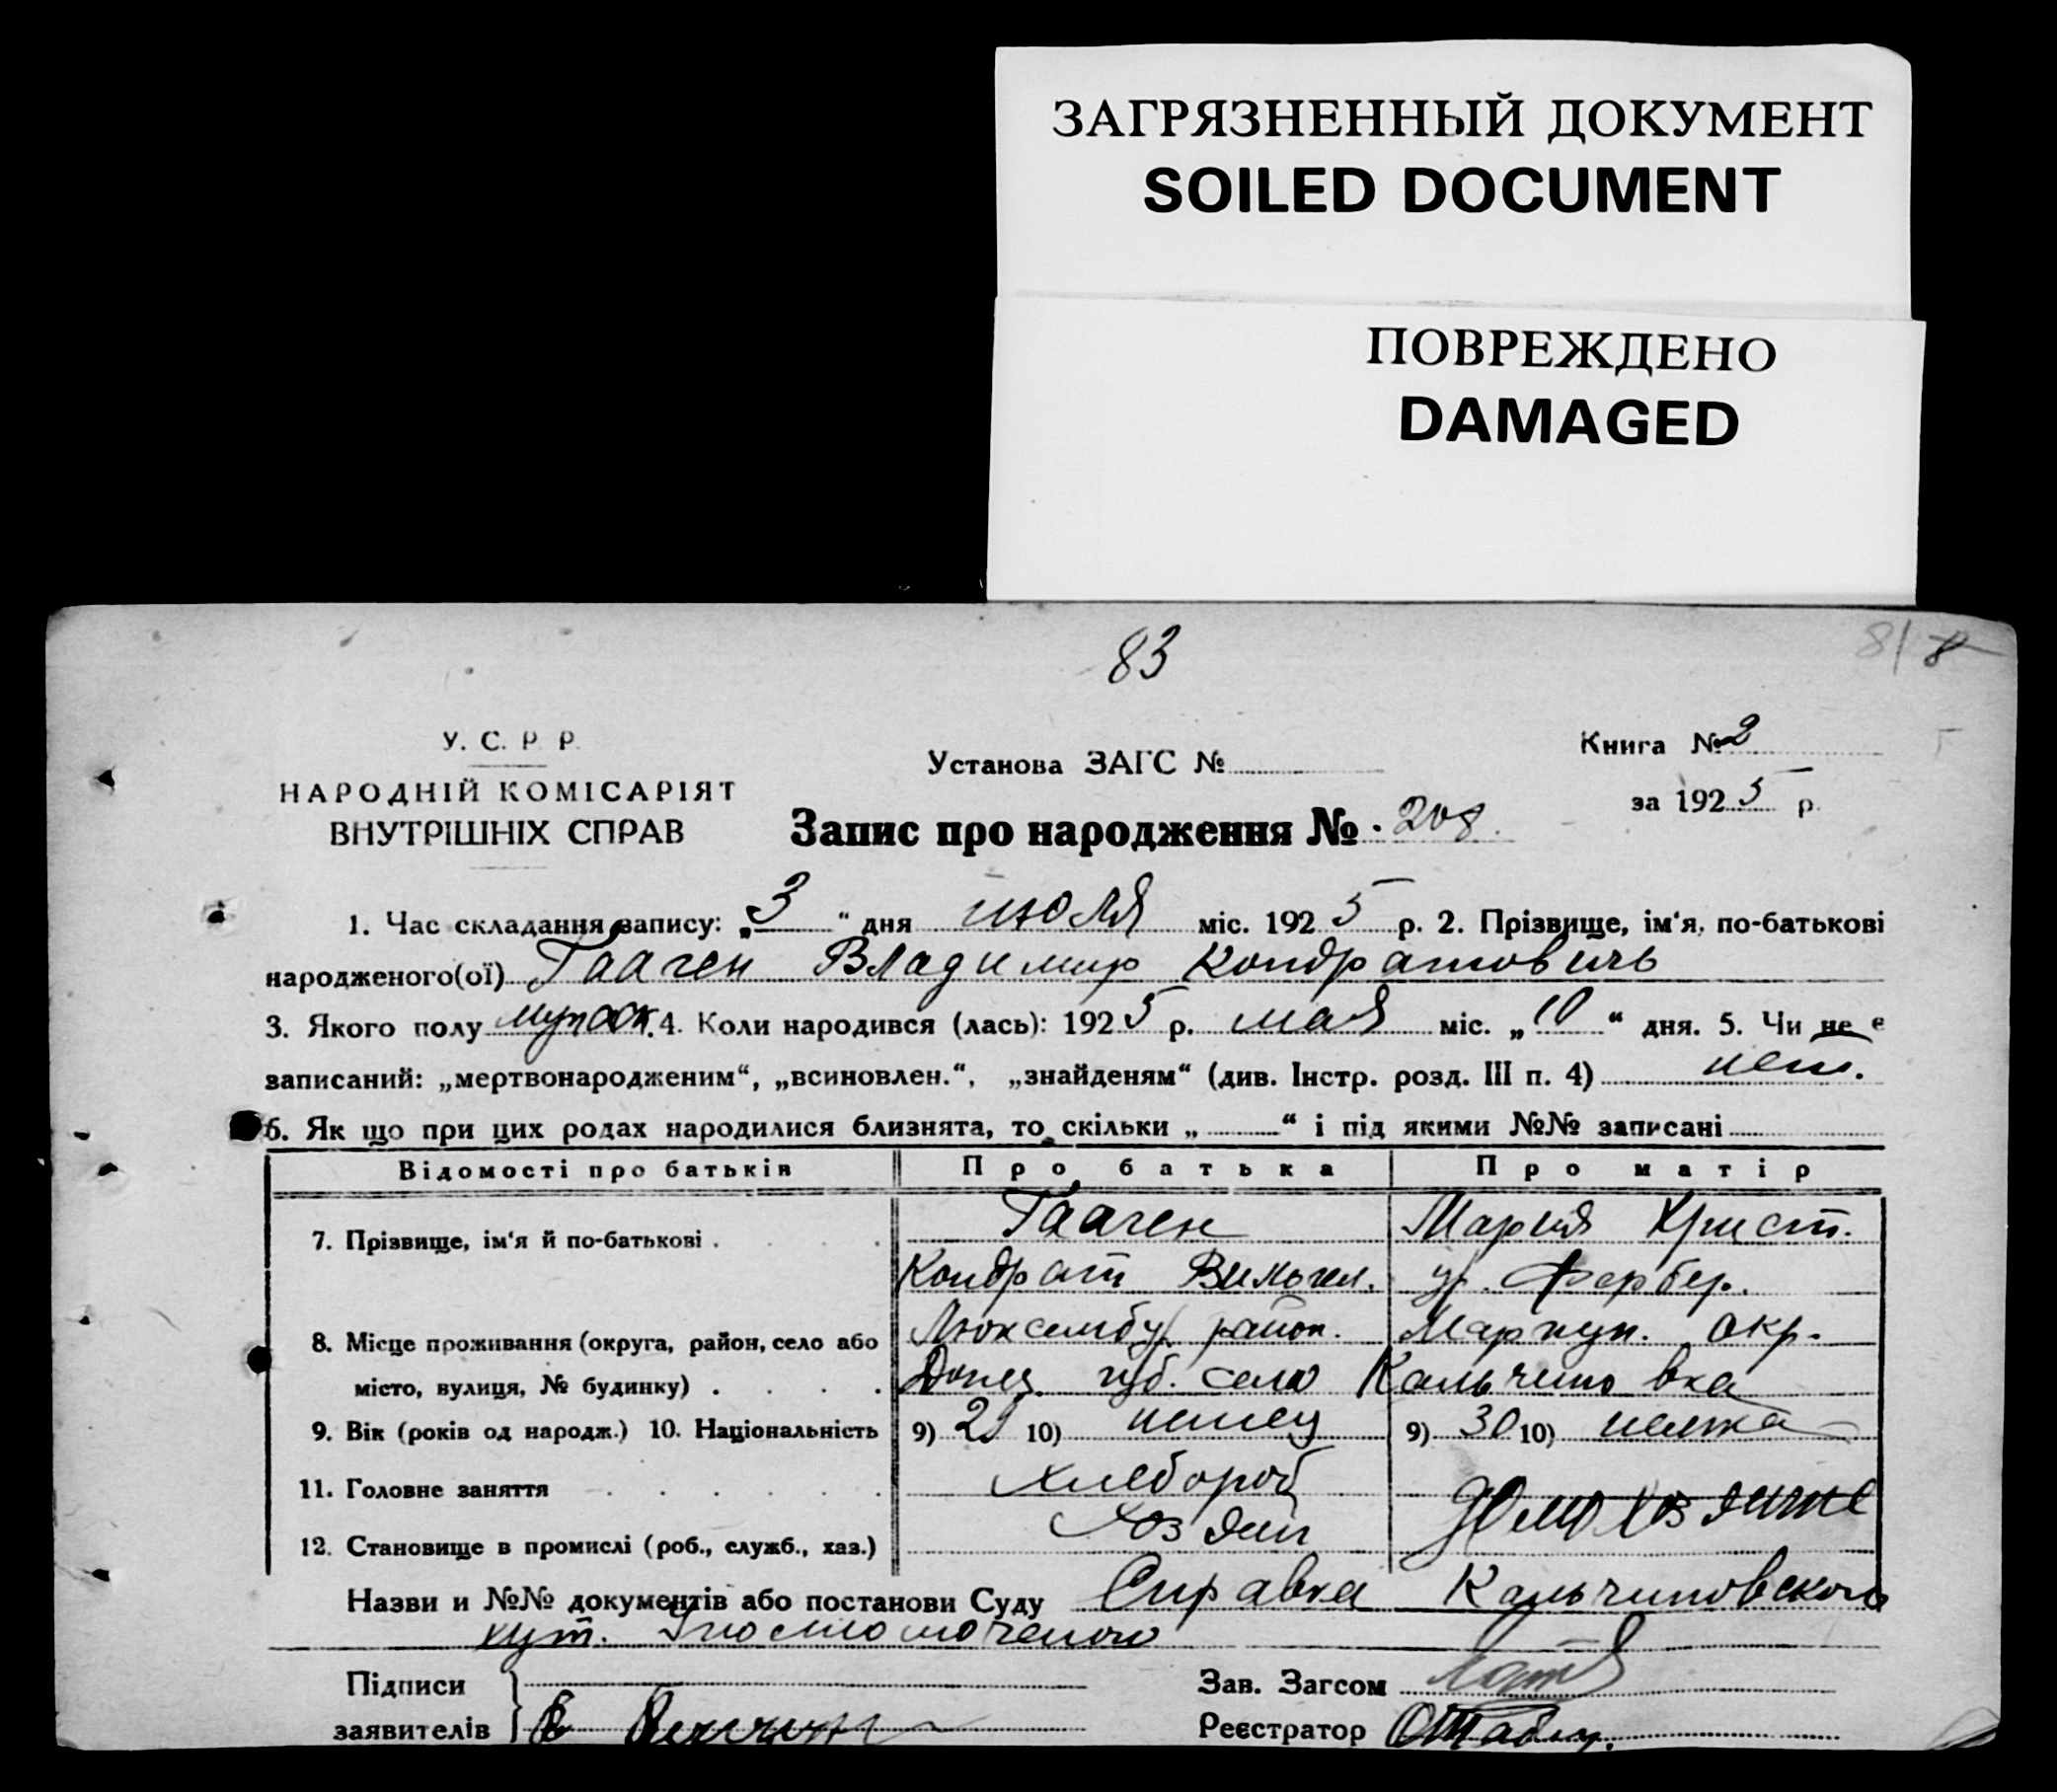 ЗАГРЯЗНЕННЫЙ ДОКУМЕНТ
SOILED DOCUMENT
ПОВРЕЖДЕНО
DAMAGED
83
81
У. С. Р. Р.
НАРОДНІЙ КОМІСАРІЯТ
ВНУТРІШНІХ СПРАВ
Установа ЗАГС №
Книга № 2
за 1925 р.
Запис про народження № 208.
1. Час складання запису: „3“ дня июля міс. 1925 р. 2. Прізвище, ім‘я, по-батькові
народженого(ої) Гаачен Владимир Кондратовичь
3. Якого полу мужск. 4. Коли народився (лась): 1925 р. мая міс. „10“ дня. 5. Чи не є
записаний: „мертвонародженим“, „всиновлен.“, „знайденям“ (див. Інстр. розд. III п. 4) нет.
6. Як що при цих родах народилися близнята, то скільки „ “ і під якими №№ записані
Відомості про батьків Про батька Про матір
7. Прізвище, ім‘я й по-батькові . Гаачен Мария Христ.
Кондрат Вильгел. ур. Фербер.
8. Місце проживання (округа, район, село або Люксембур. район. Мариуп. окр.
місто, вулиця, № будинку) . Донец. губ. село Кальчиновка
9. Вік (років од народж.) 10. Національність 9) 29 10) немец 9) 30 10) немка
11. Головне заняття хлебороб Домохозяйке
12. Становище в промислі (роб., служб., хаз.) Хозяин
Назви и №№ документів або постанови Суду Справка Кальчиновского
хут. Уполномоченого
Підписи
заявителів
Зав. Загсом
Реєстратор